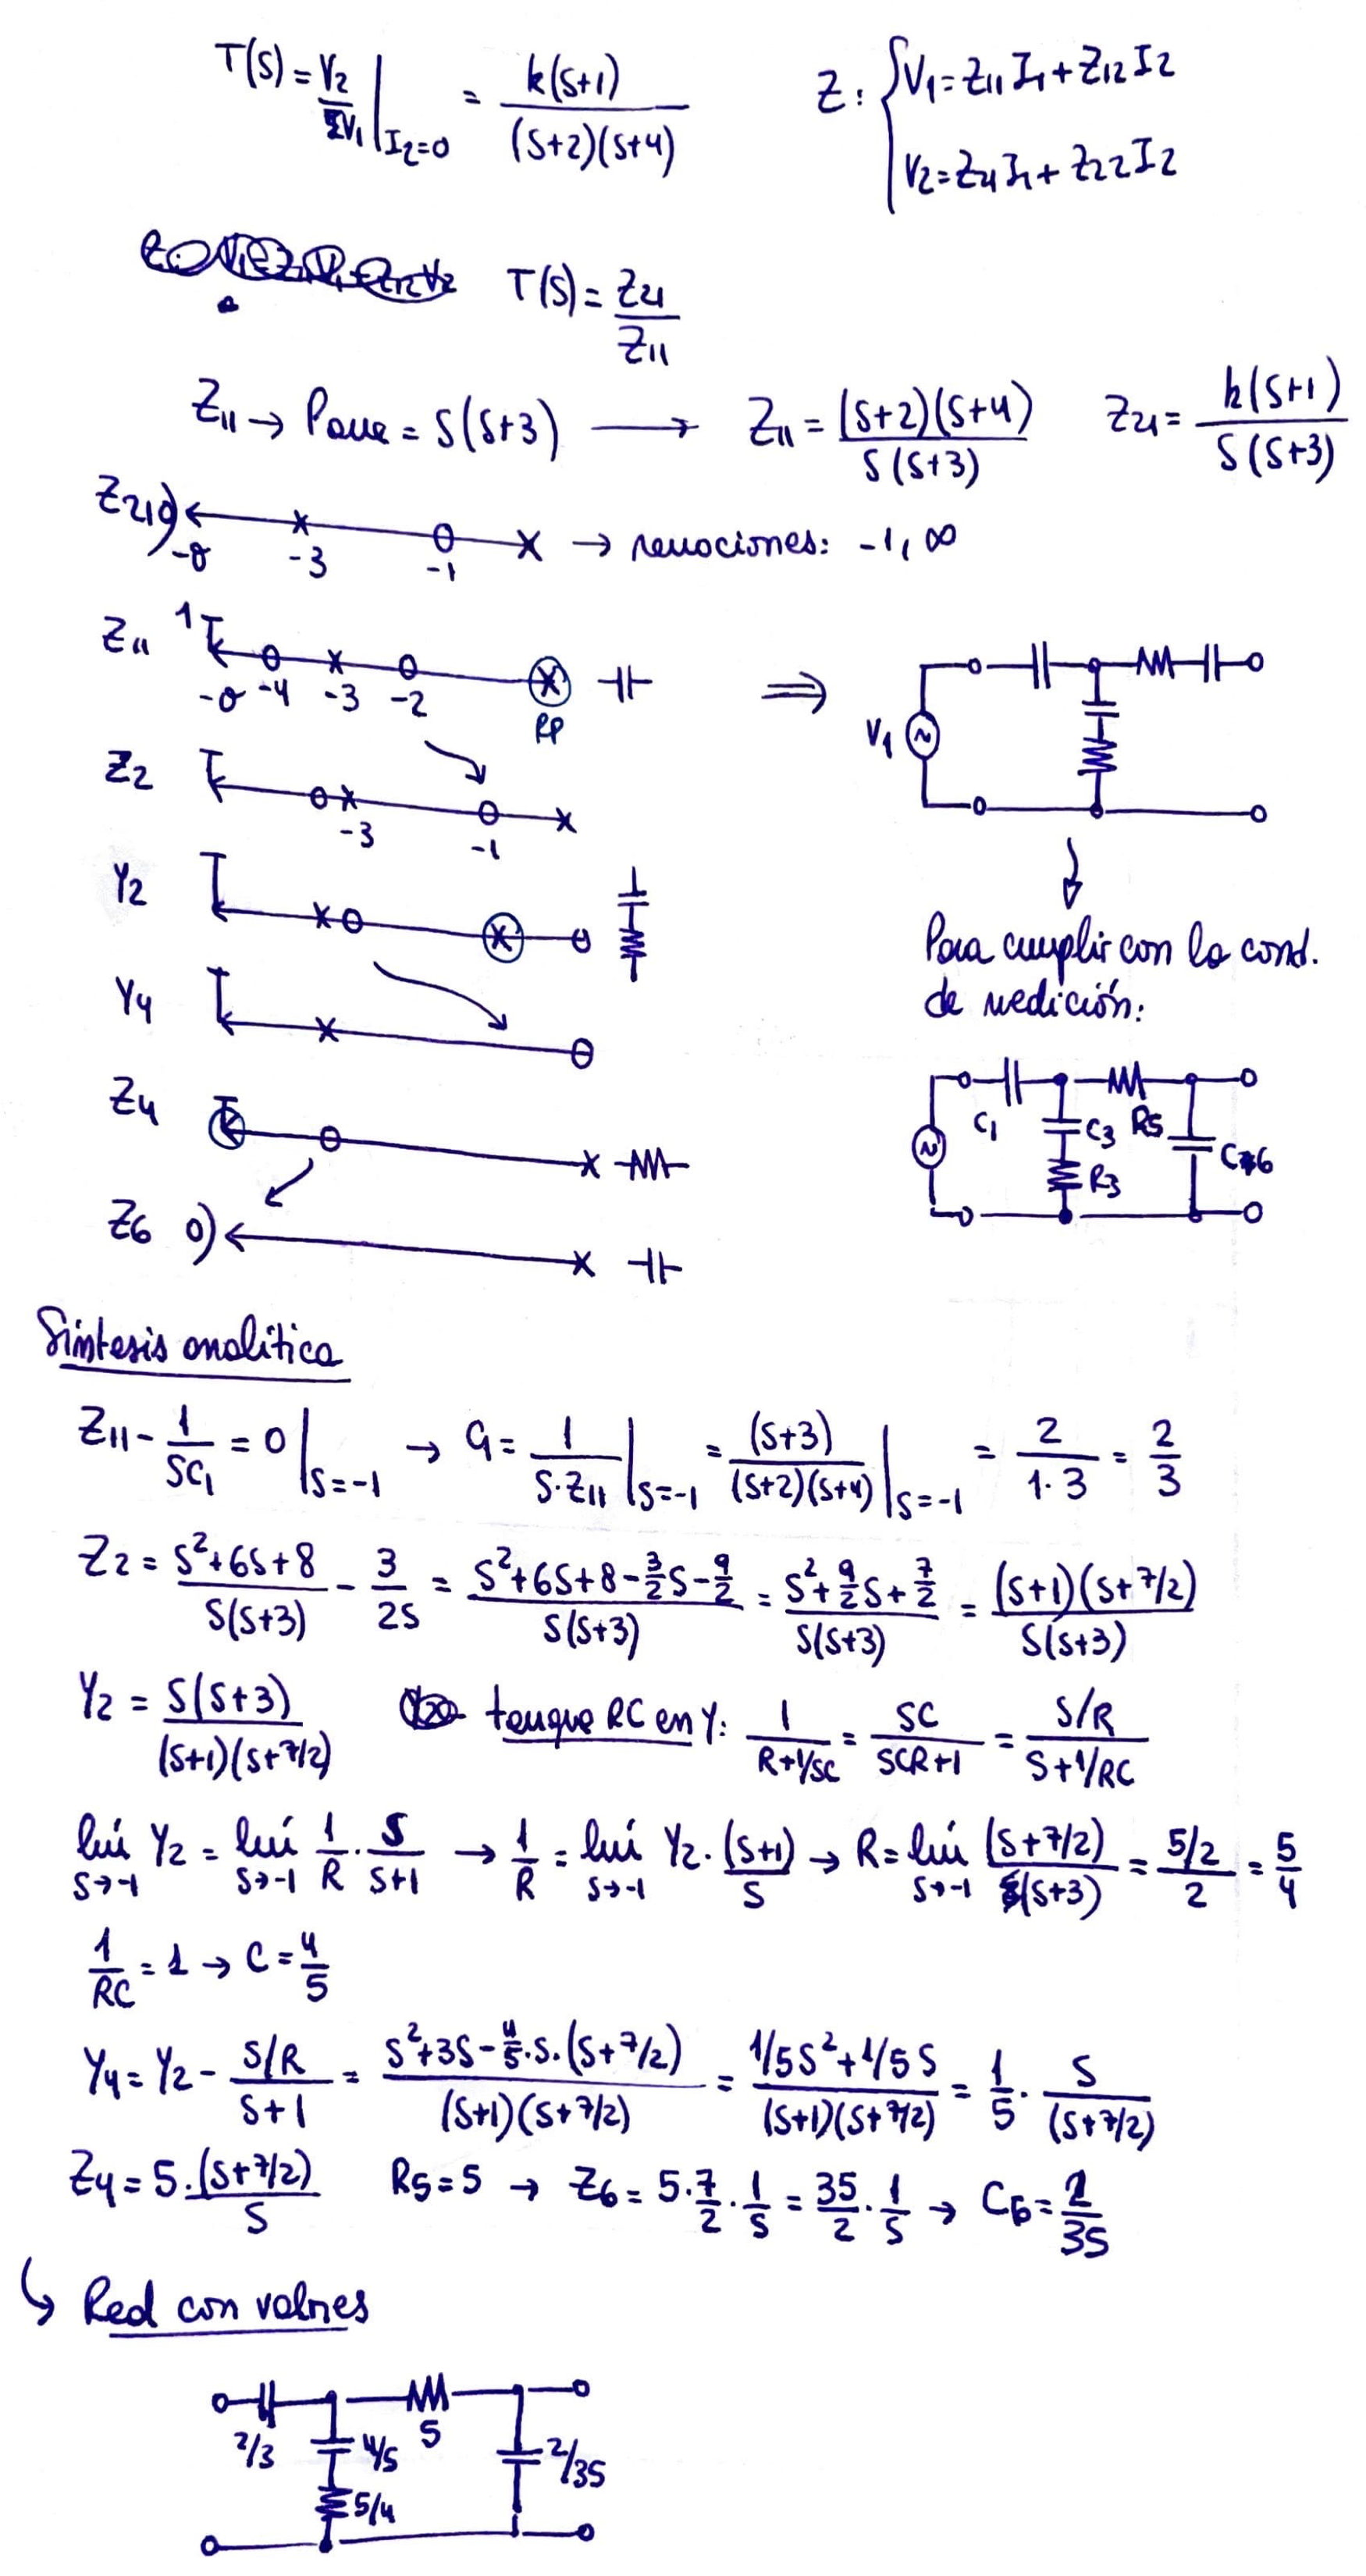 T(S) = V2/V1 |I2=0 = k(S+1)/((S+2)(S+4))
Z: { V1 = Z11 I1 + Z12 I2
V2 = Z21 I1 + Z22 I2
T(S) = Z21/Z11
Z11 → Paux = S(S+3) → Z11 = (S+2)(S+4)/(S(S+3)) Z21 = k(S+1)/(S(S+3))
Z21 0)
-σ -3 -1 → remociones: -1, ∞
Z11 1
-σ -4 -3 -2 RP
V1
Z2
-3 -1
Y2
Y4
Z4
Z6 0)
Para cumplir con la cond.
de medición:
C1 C3 R5 R3 C6
Síntesis analítica
Z11 - 1/(SC1) = 0 |S=-1 → C1 = 1/(S·Z11) |S=-1 = (S+3)/((S+2)(S+4)) |S=-1 = 2/(1·3) = 2/3
Z2 = (S²+6S+8)/(S(S+3)) - 3/(2S) = (S²+6S+8-3/2S-9/2)/(S(S+3)) = (S²+9/2S+7/2)/(S(S+3)) = (S+1)(S+7/2)/(S(S+3))
Y2 = S(S+3)/((S+1)(S+7/2)) tanque RC en Y: 1/(R+1/SC) = SC/(SCR+1) = (S/R)/(S+1/RC)
lim S→-1 Y2 = lim S→-1 1/R · S/(S+1) → 1/R = lim S→-1 Y2·(S+1)/S → R = lim S→-1 (S+7/2)/(S+3) = (5/2)/2 = 5/4
1/RC = 1 → C = 4/5
Y4 = Y2 - (S/R)/(S+1) = (S²+3S-4/5·S·(S+7/2))/((S+1)(S+7/2)) = (1/5S²+1/5S)/((S+1)(S+7/2)) = 1/5 · S/(S+7/2)
Z4 = 5·(S+7/2)/S R5 = 5 → Z6 = 5·7/2·1/S = 35/2·1/S → C6 = 2/35
↳ Red con valores
2/3 4/5 5 2/35
5/4